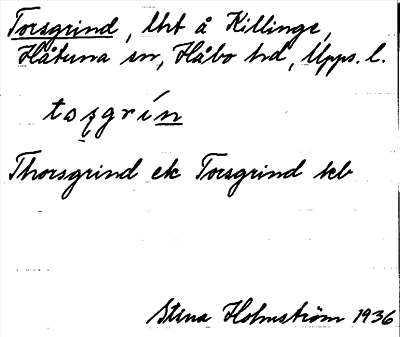 Torsgrind, lht å Killinge,
Håtuna sn, Håbo hd, Upps. l.
tosgrín
Thorsgrind ek Torsgrind kb
Stina Holmström 1936